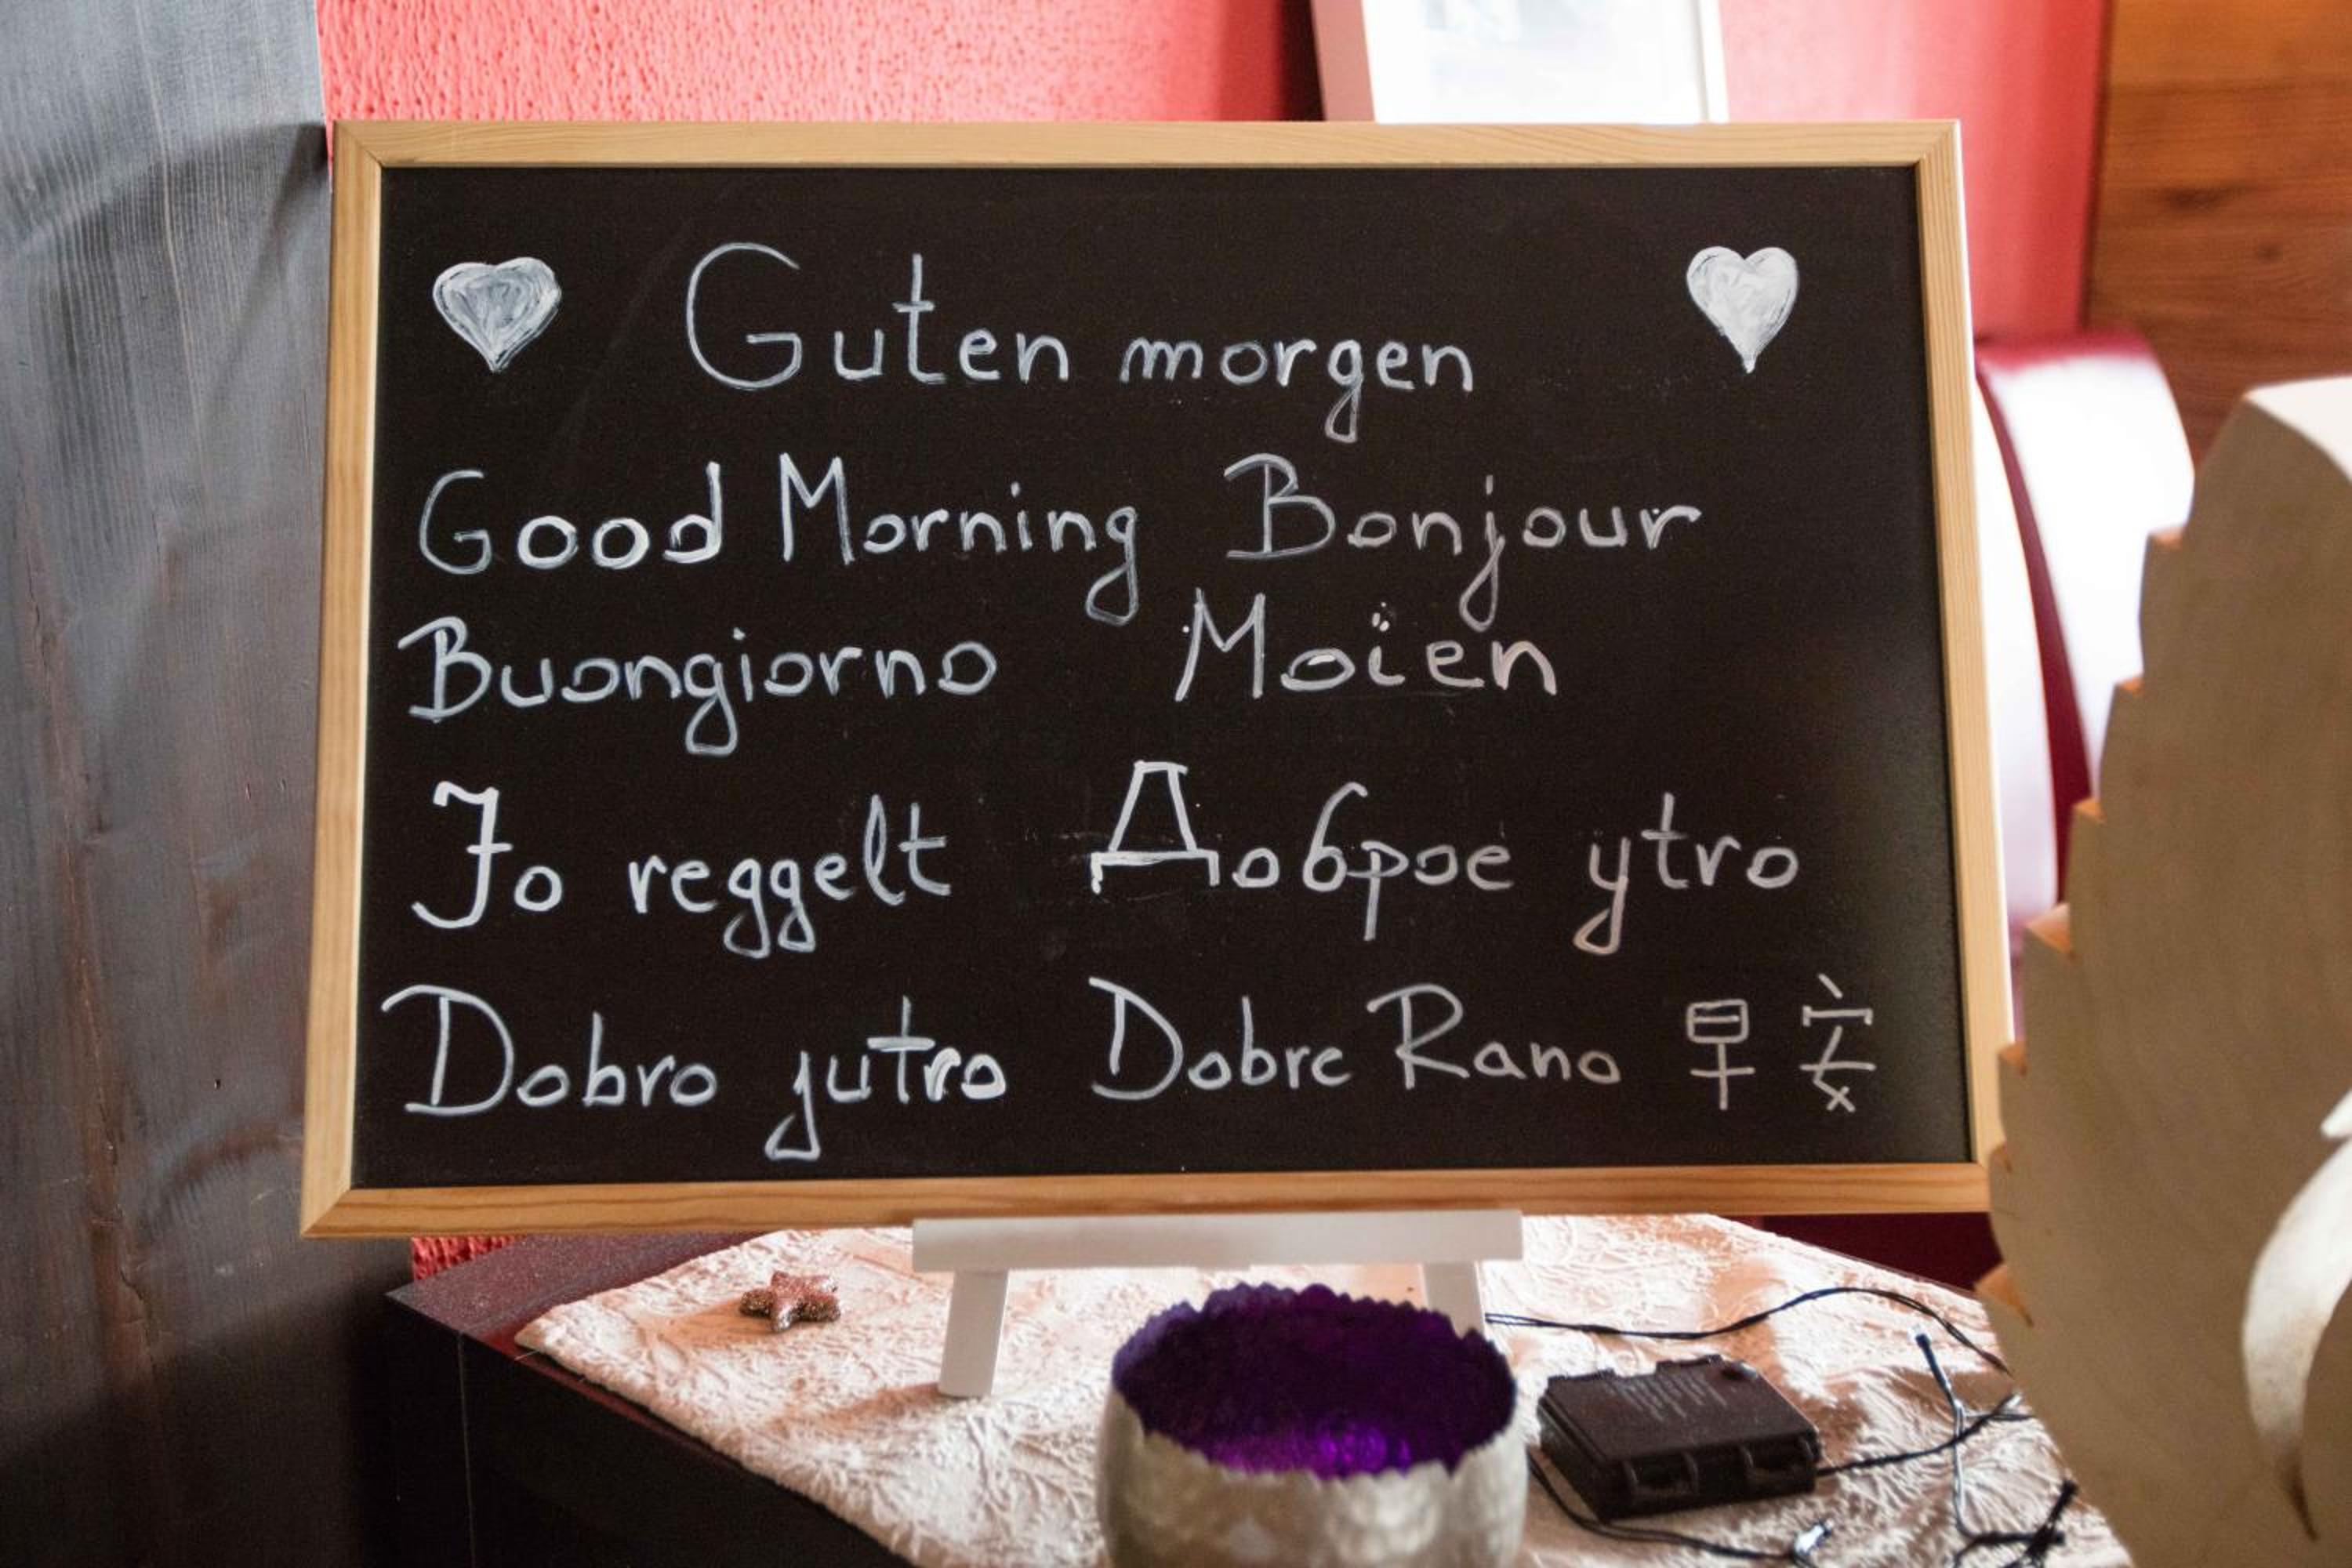 Guten morgen
Good Morning Bonjour
Buongiorno Moïen
Jo reggelt Доброе ytro
Dobro jutro Dobre Rano 早安